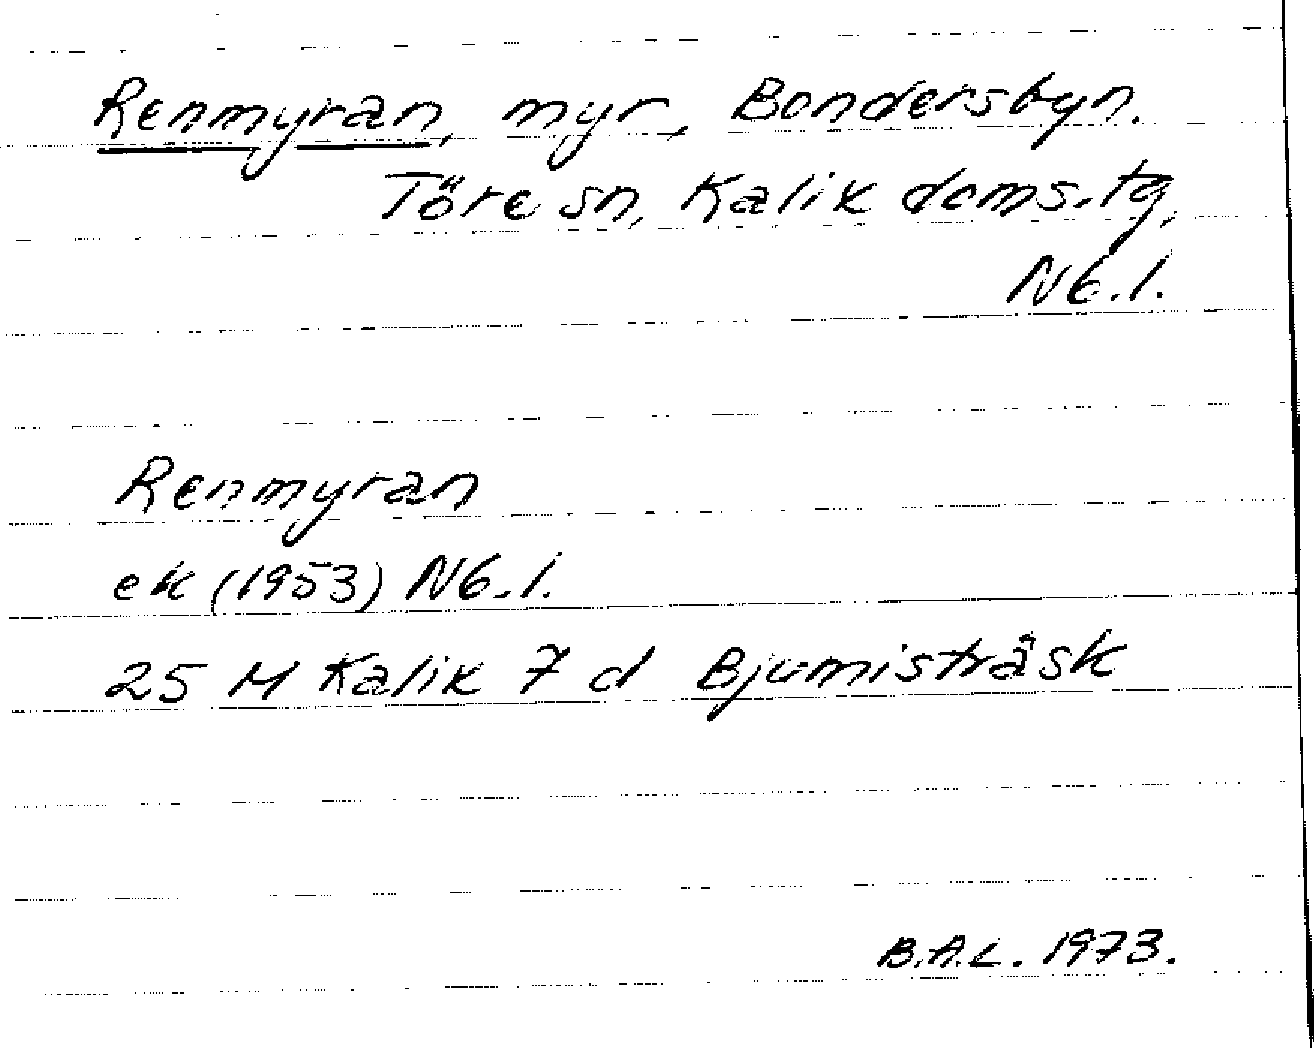 Renmyran, myr, Bondersbyn.
Töre sn, Kalix doms.tg,
Nb.l.
Renmyran
ek (1953) Nb.l.
25 M Kalix 7 d Bjumisträsk
B.A.L. 1973.